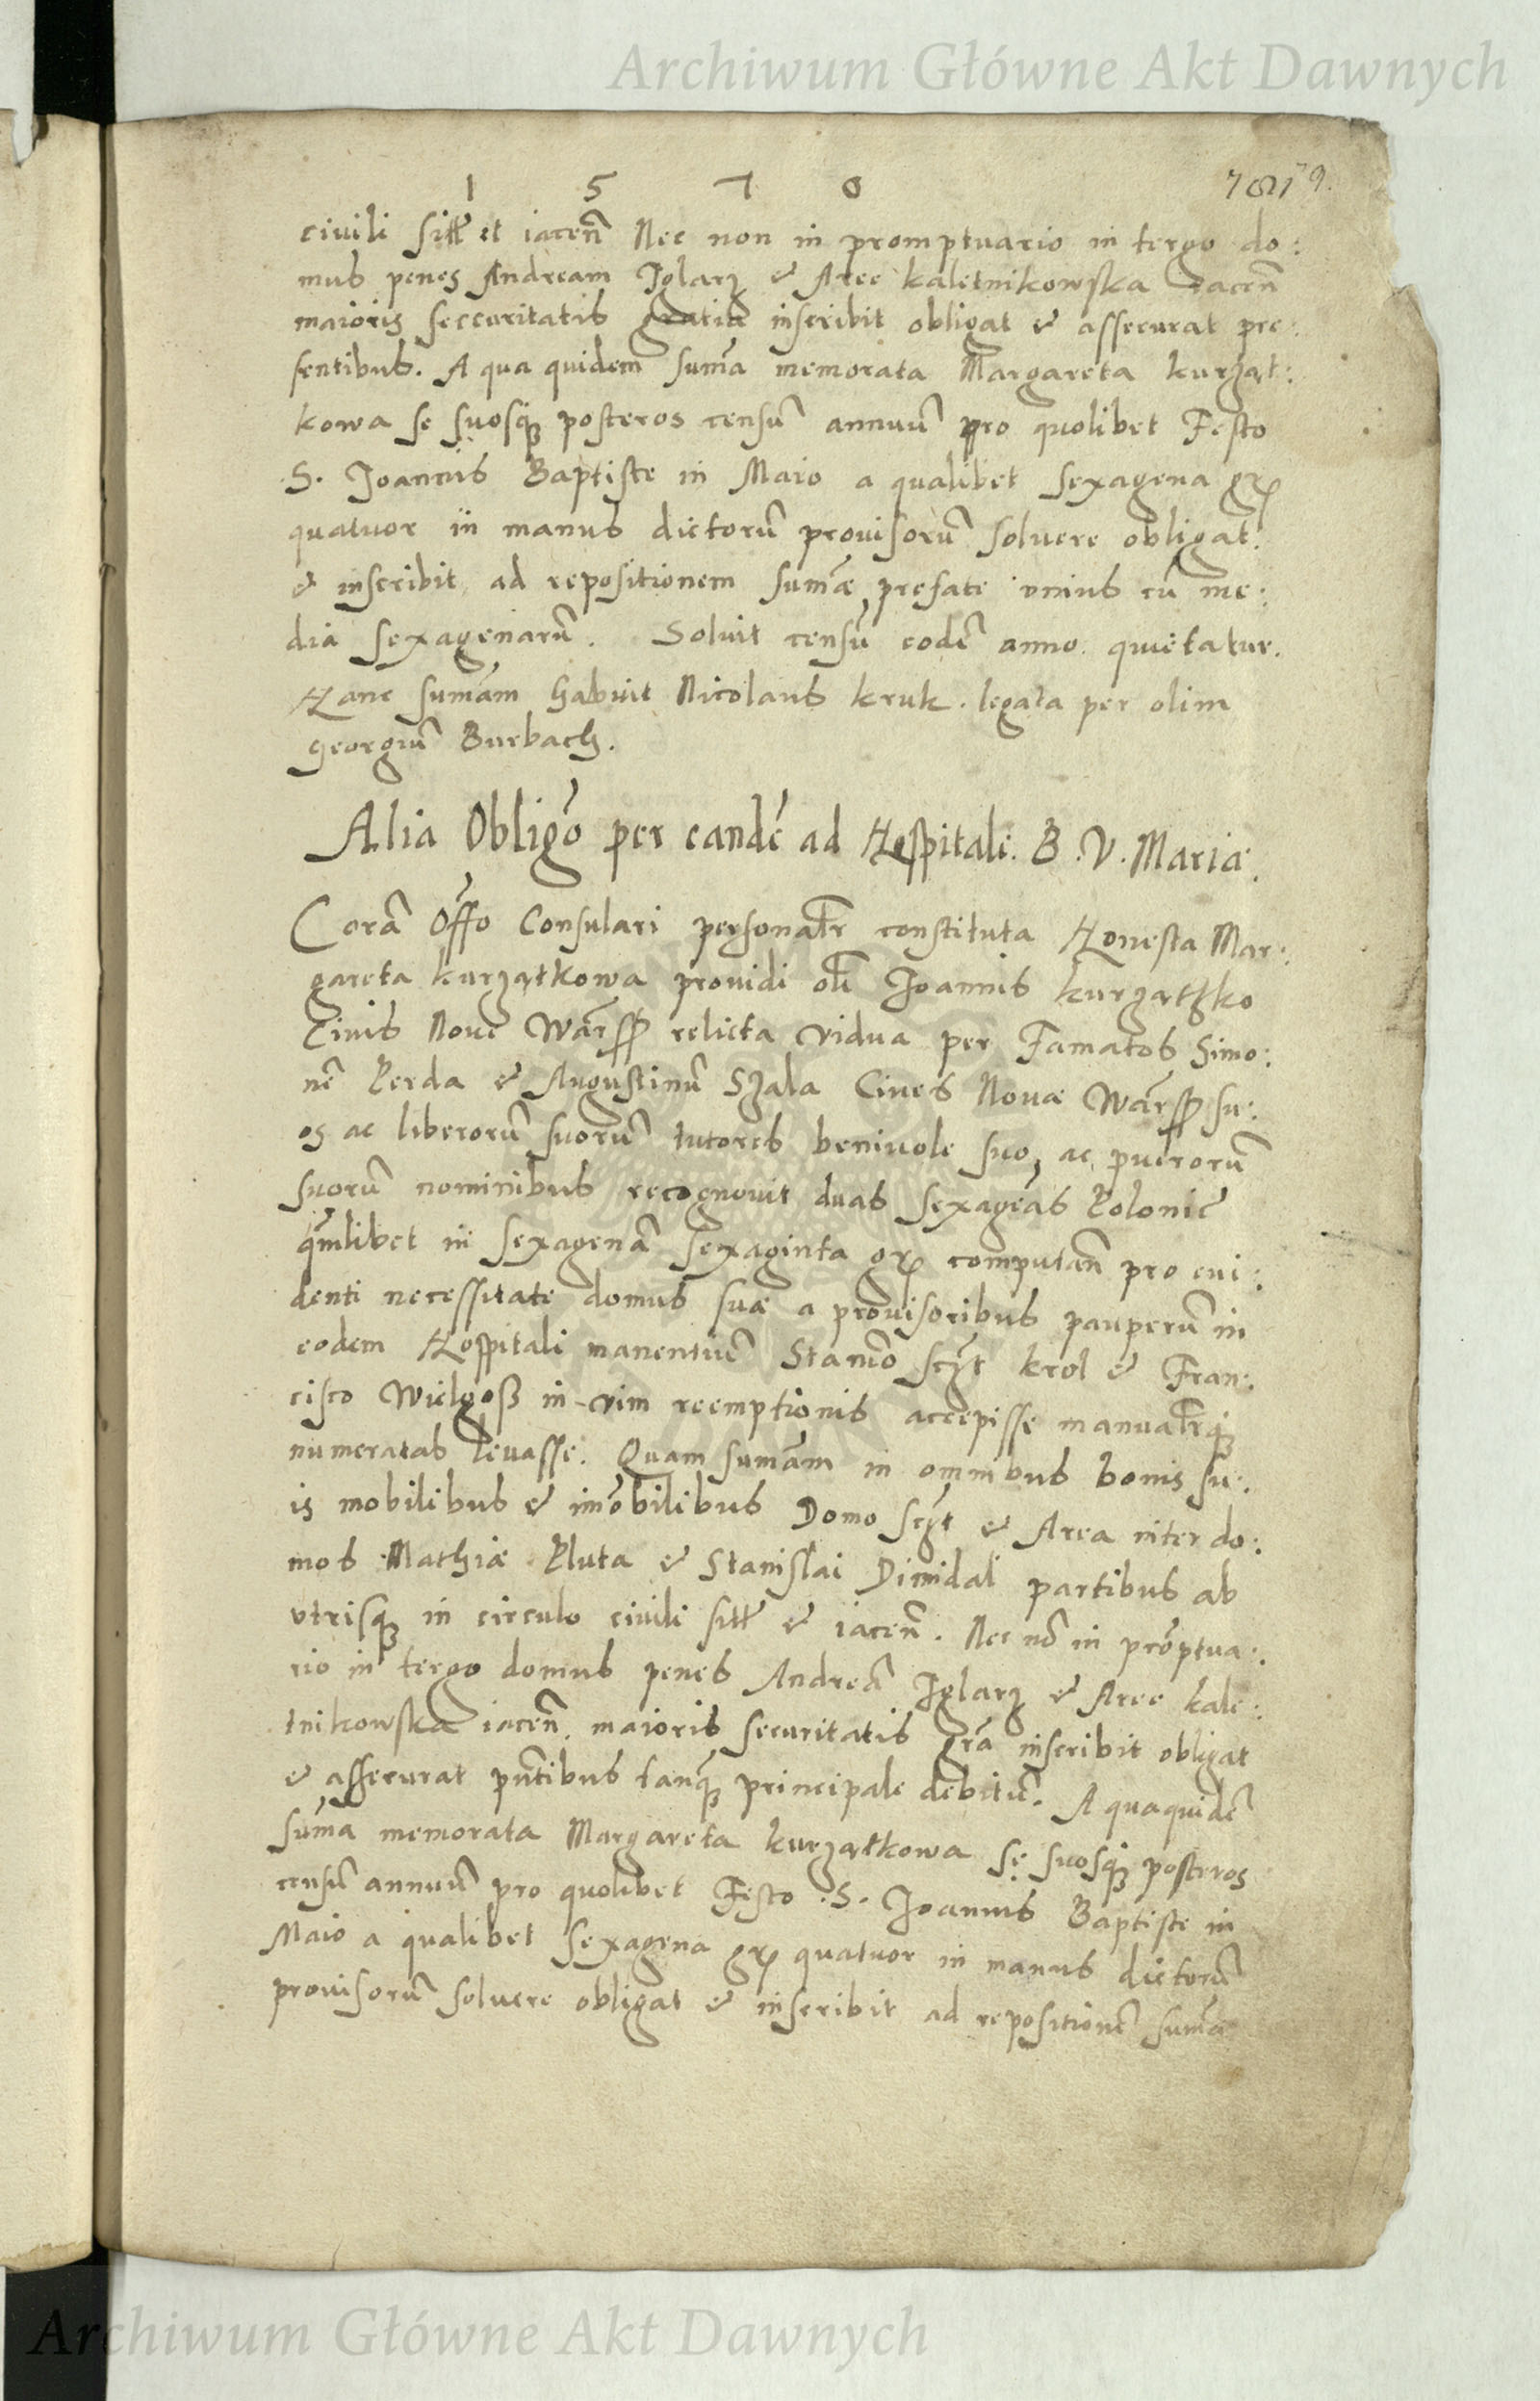 Archiwum Główne Akt Dawnych
1 5 7 0
79.
ciuili sitt̃ et iaceñ Nec non in promptuario in tergo do:
mus penes Andream Jglarz & Aree kaletnikowska iaceñ
maioris seccuritatis gratia inscribit obligat & assecurat pre:
sentibus. A qua quidem suma memorata Margareta kurząt:
kowa se suosq3 posteros censũ annuũ pro quolibet Festo
S. Joannis Baptiste in Maio a qualibet sexagena gr
quatuor in manus dictorũ prouisorũ soluere obligat.
& inscribit ad repositionem sumæ prefate vnius cũ me:
dia sexagenarũ. Soluit censũ eodẽ anno quietatur.
Hanc sumãm habuit Nicolaus kruk. legata per olim
georgiũ Burbach.
Alia Obligõ per eandẽ ad Hospitale. B. V. Mariæ.
Corã Offo Consulari personalr̃ constituta Honesta Mar:
gareta kurzątkowa prouidi olĩ Joannis kurzątko
Ciuis Noue Warss relicta vidua per Famatos Simo:
nẽ Perda & Augustinũ Szala Ciues Nouæ Warss su:
os ac liberorũ suorũ tutores beniuole suo, ac puerorũ
suorũ nominibus recognouit duas sexagẽas Polonic̃
qmlibet in sexagenã sexaginta gr computañ pro eui:
denti necessitate domus suæ a prouisoribus pauperũ in
eodem Hospitali manentiũ Stanisõ scz̃t krol & Fran:
cisco Wielgosz in vim reemptionis accepisse manualr̃q3
numeratas leuasse. Quam sumãm in omnibus bonis su:
is mobilibus & imõbilibus Domo scz̃t & Area inter do:
mos Mathiæ Pluta & Stanislai Dimidal partibus ab
vtrisq3 in circulo ciuili sitt̃ & iaceñ. Nec nõ in prõptua:
rio in tergo domus penes Andreã Jglarz & Aree kale:
tnikowska iaceñ. maioris securitatis grã inscribit obligat
& assecurat pñtibus tanq̃3 principale debitũ. A quaquidẽ
suma memorata Margareta kurzątkowa se suosq3 posteros
censũ annuũ pro quolibet Festo .S. Joannis Baptiste in
Maio a qualibet sexagena gr quatuor in manus dictorũ
prouisorũ soluere obligat & inscribit ad repositionẽ sumæ
Archiwum Główne Akt Dawnych